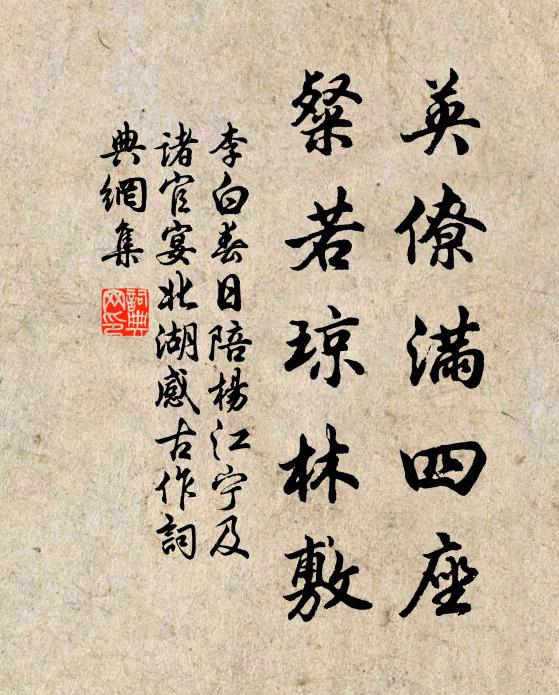 英僚滿四座
粲若琼林敷
李白春日陪楊江宁及
諸官宴北湖感古作詞
典網集
詞典
网印